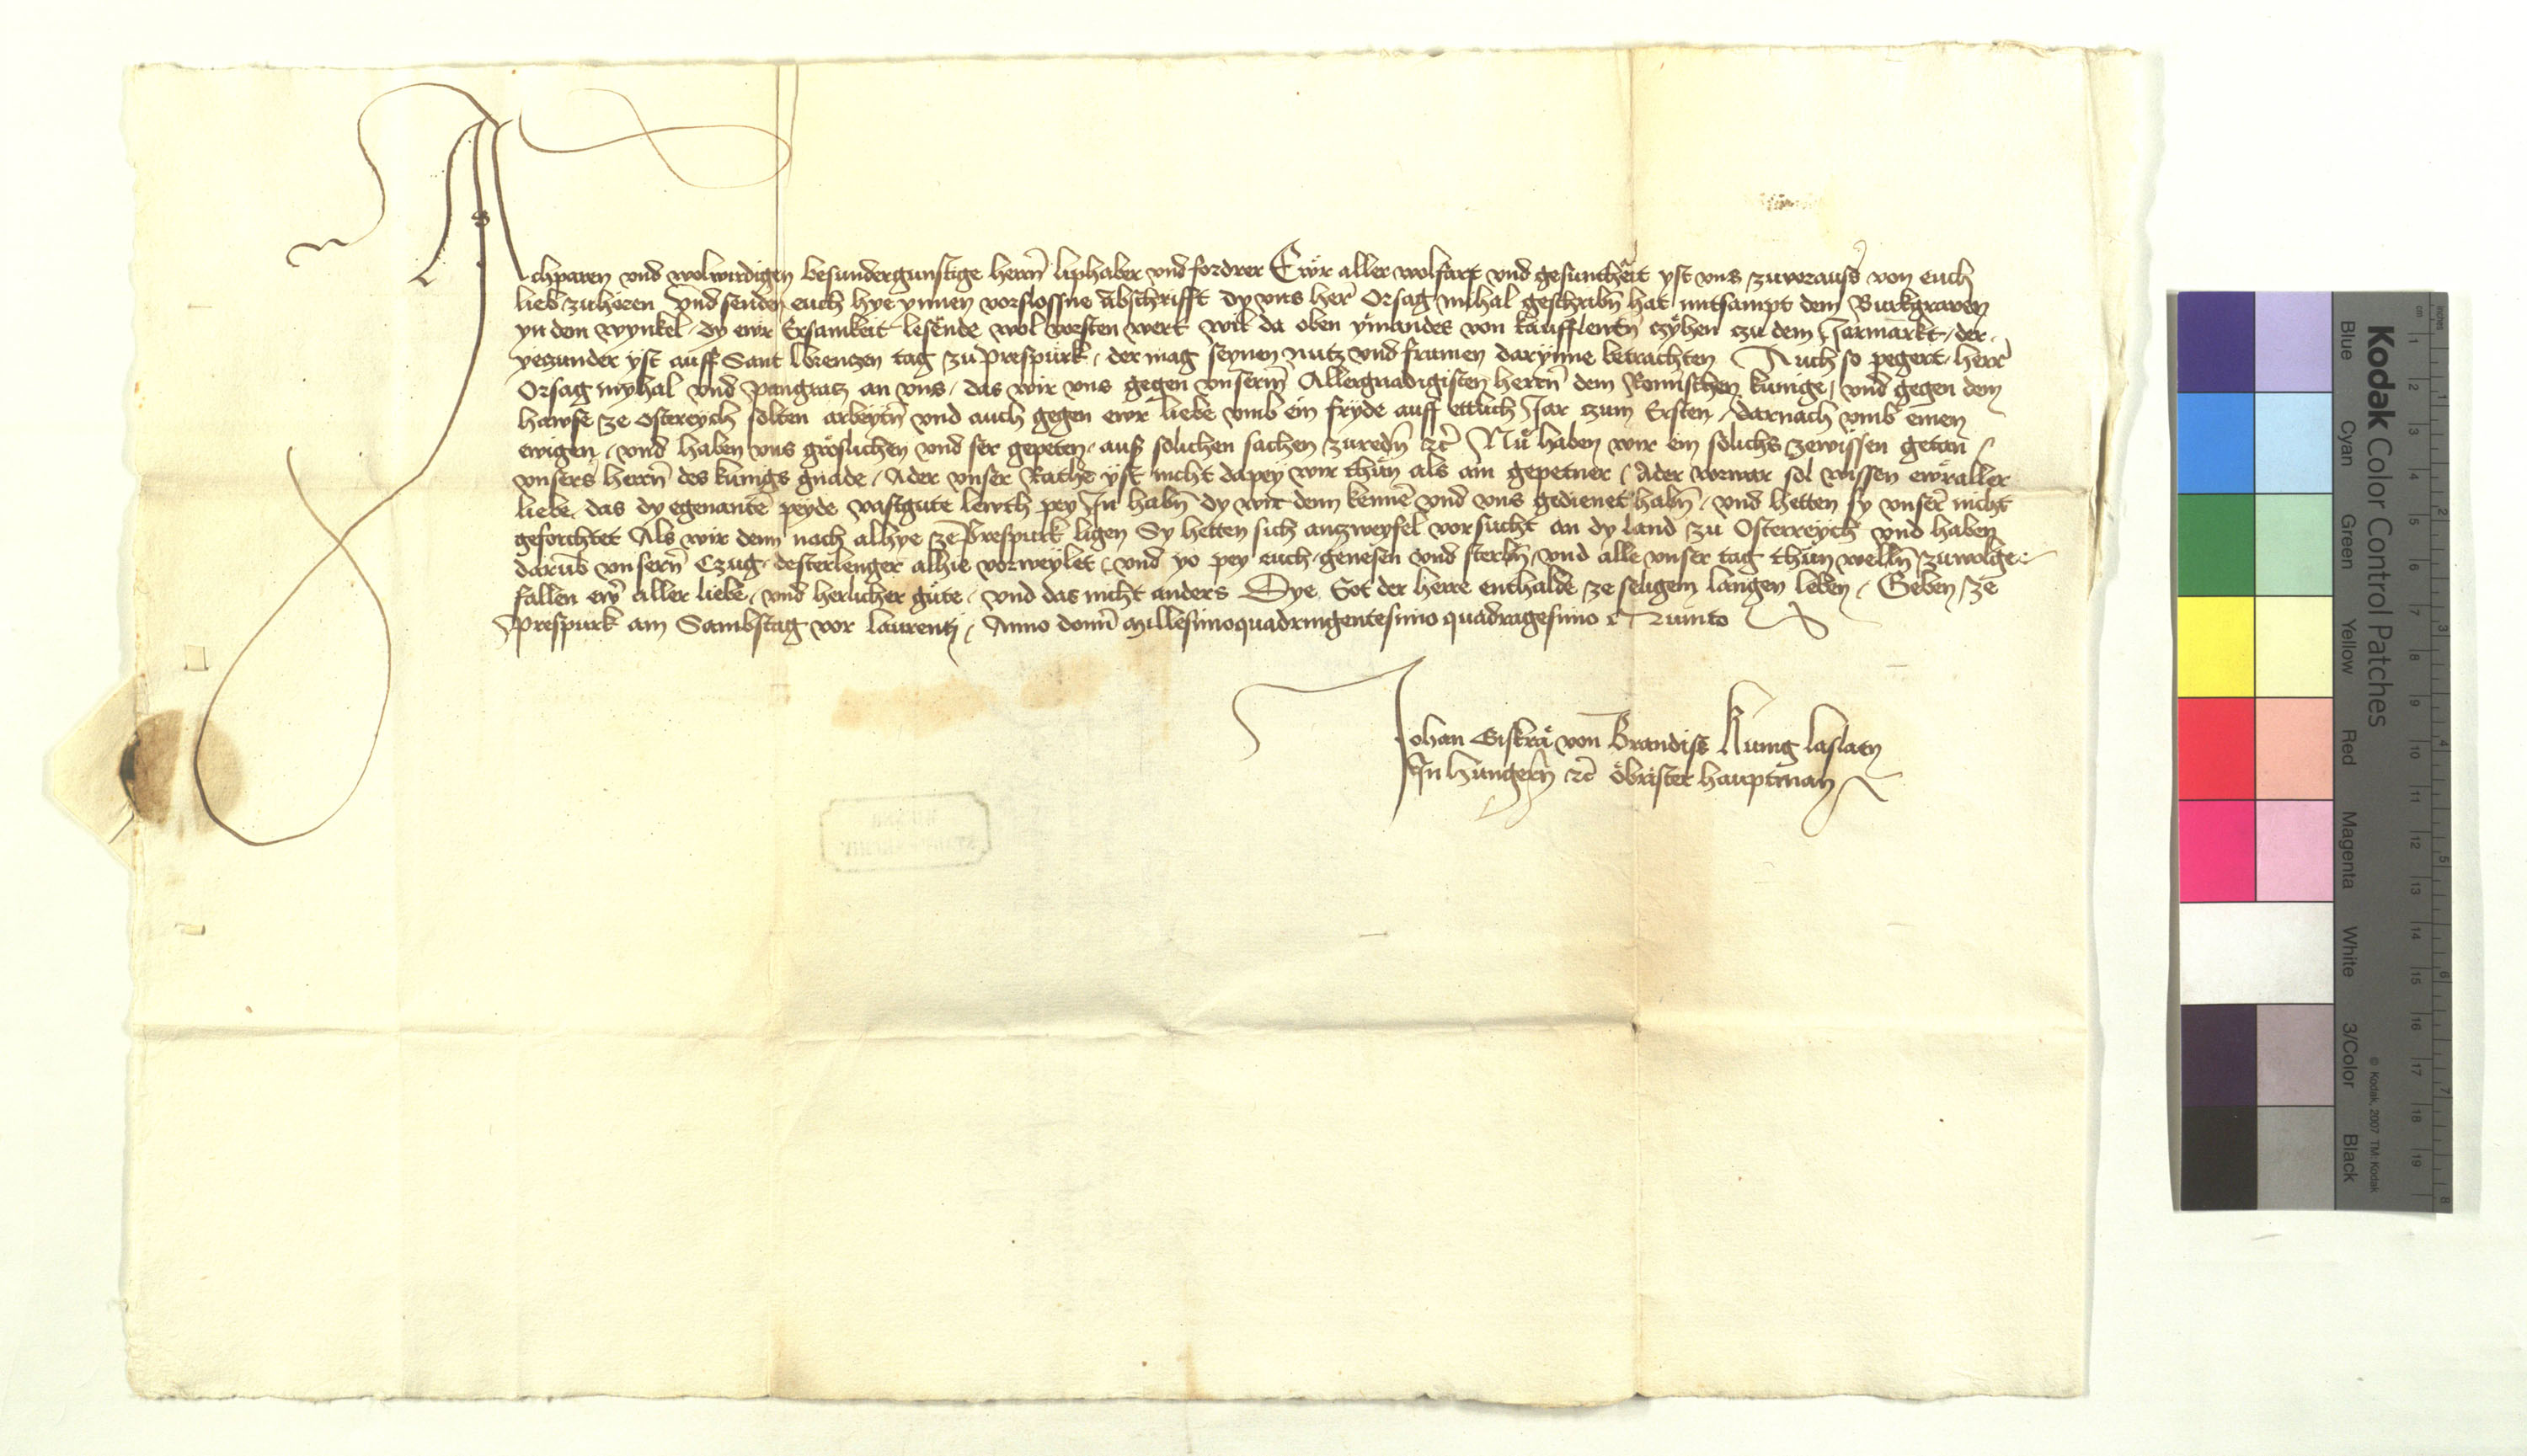 Achparen vnd wolwirdigen besundergunstige herrn̄ liphaber vnd fordrer Ewr̈ aller wolfart vnd gesuntheit yst vns zuvorauss von euch
lieb zuhoren Vnd senden euch hye ynnen vorslossne abschrifft dy vns her Orsag mihal geschribn̄ hat mitsampt dem Burkgraven
yn dem wynkel / dy ewr Ersamkeit lesende wol vorsten wert wil da oben ymandes von kaufflewtn̄ czyhen czu dem Jarmarkt / der
yeczunder yst auff Sant lorenczen tag zu prespurk / der mag seynen nutz vnd frumen darynne betrachten Auch so pegert herr
Orsag myhal vnd pangratz an vns / das wir vns gegen vnserm̄ Allergnadigisten herrn̄ dem Romischen kunige / vnd gegen dem
hawse ze ostereych solten arbeytn̄ vnd auch gegen ewr liebe vmb ein fryde auff ettlich Jar czum Ersten / darnach vmb einen
ewigen / vnd haben vns groslichen vnd ser gepeten / auss solichen sachen zuredn̄ ꝛc̄ Nu haben wir ein solichs zewissen getan /
vnsers herrn̄ des kunigs gnade / Ader vnser Rathe yst nicht dapey wir thun als ain gepetner / Ader vorwar sol wissen ewr aller
liebe das dy egenante peyde vastgute lewth pey Jn habn̄ dy wir denn kenne vnd vns gedienet habn̄ / vnd hetten sy vnser nicht
geforchtet Als wir denn noch alhye ze prespurk ligen Sy hetten sich anzweyfel vorsucht an dy land zu Osterreych vnd haben
darumb vnsern̄ Czug desterlenger alhie vorweylet / vnd yo pey euch genesen vnd sterbn̄ / vnd alle vnser tag thun welln̄ zuwolge
fallen ewr aller liebe / vnd herlicher gute / vnd das nicht anders Dye Got der herre enthalde ze seligem langen leben / Geben ze
prespurk am Sambstag vor laurentz / Anno domī Millesimoquadringentesimo quadragesimo Quinto
Johan Giskra von Brandiss kunig laslaen
Jn hungern̄ ꝛc̄ obrister hauptman
Kodak Color Control Patches
Blue Cyan Green Yellow Red Magenta White 3/Color Black
© Kodak, 2007 TM: Kodak
cm 1 2 3 4 5 6 7 8 9 10 11 12 13 14 15 16 17 18 19
inches 1 2 3 4 5 6 7 8